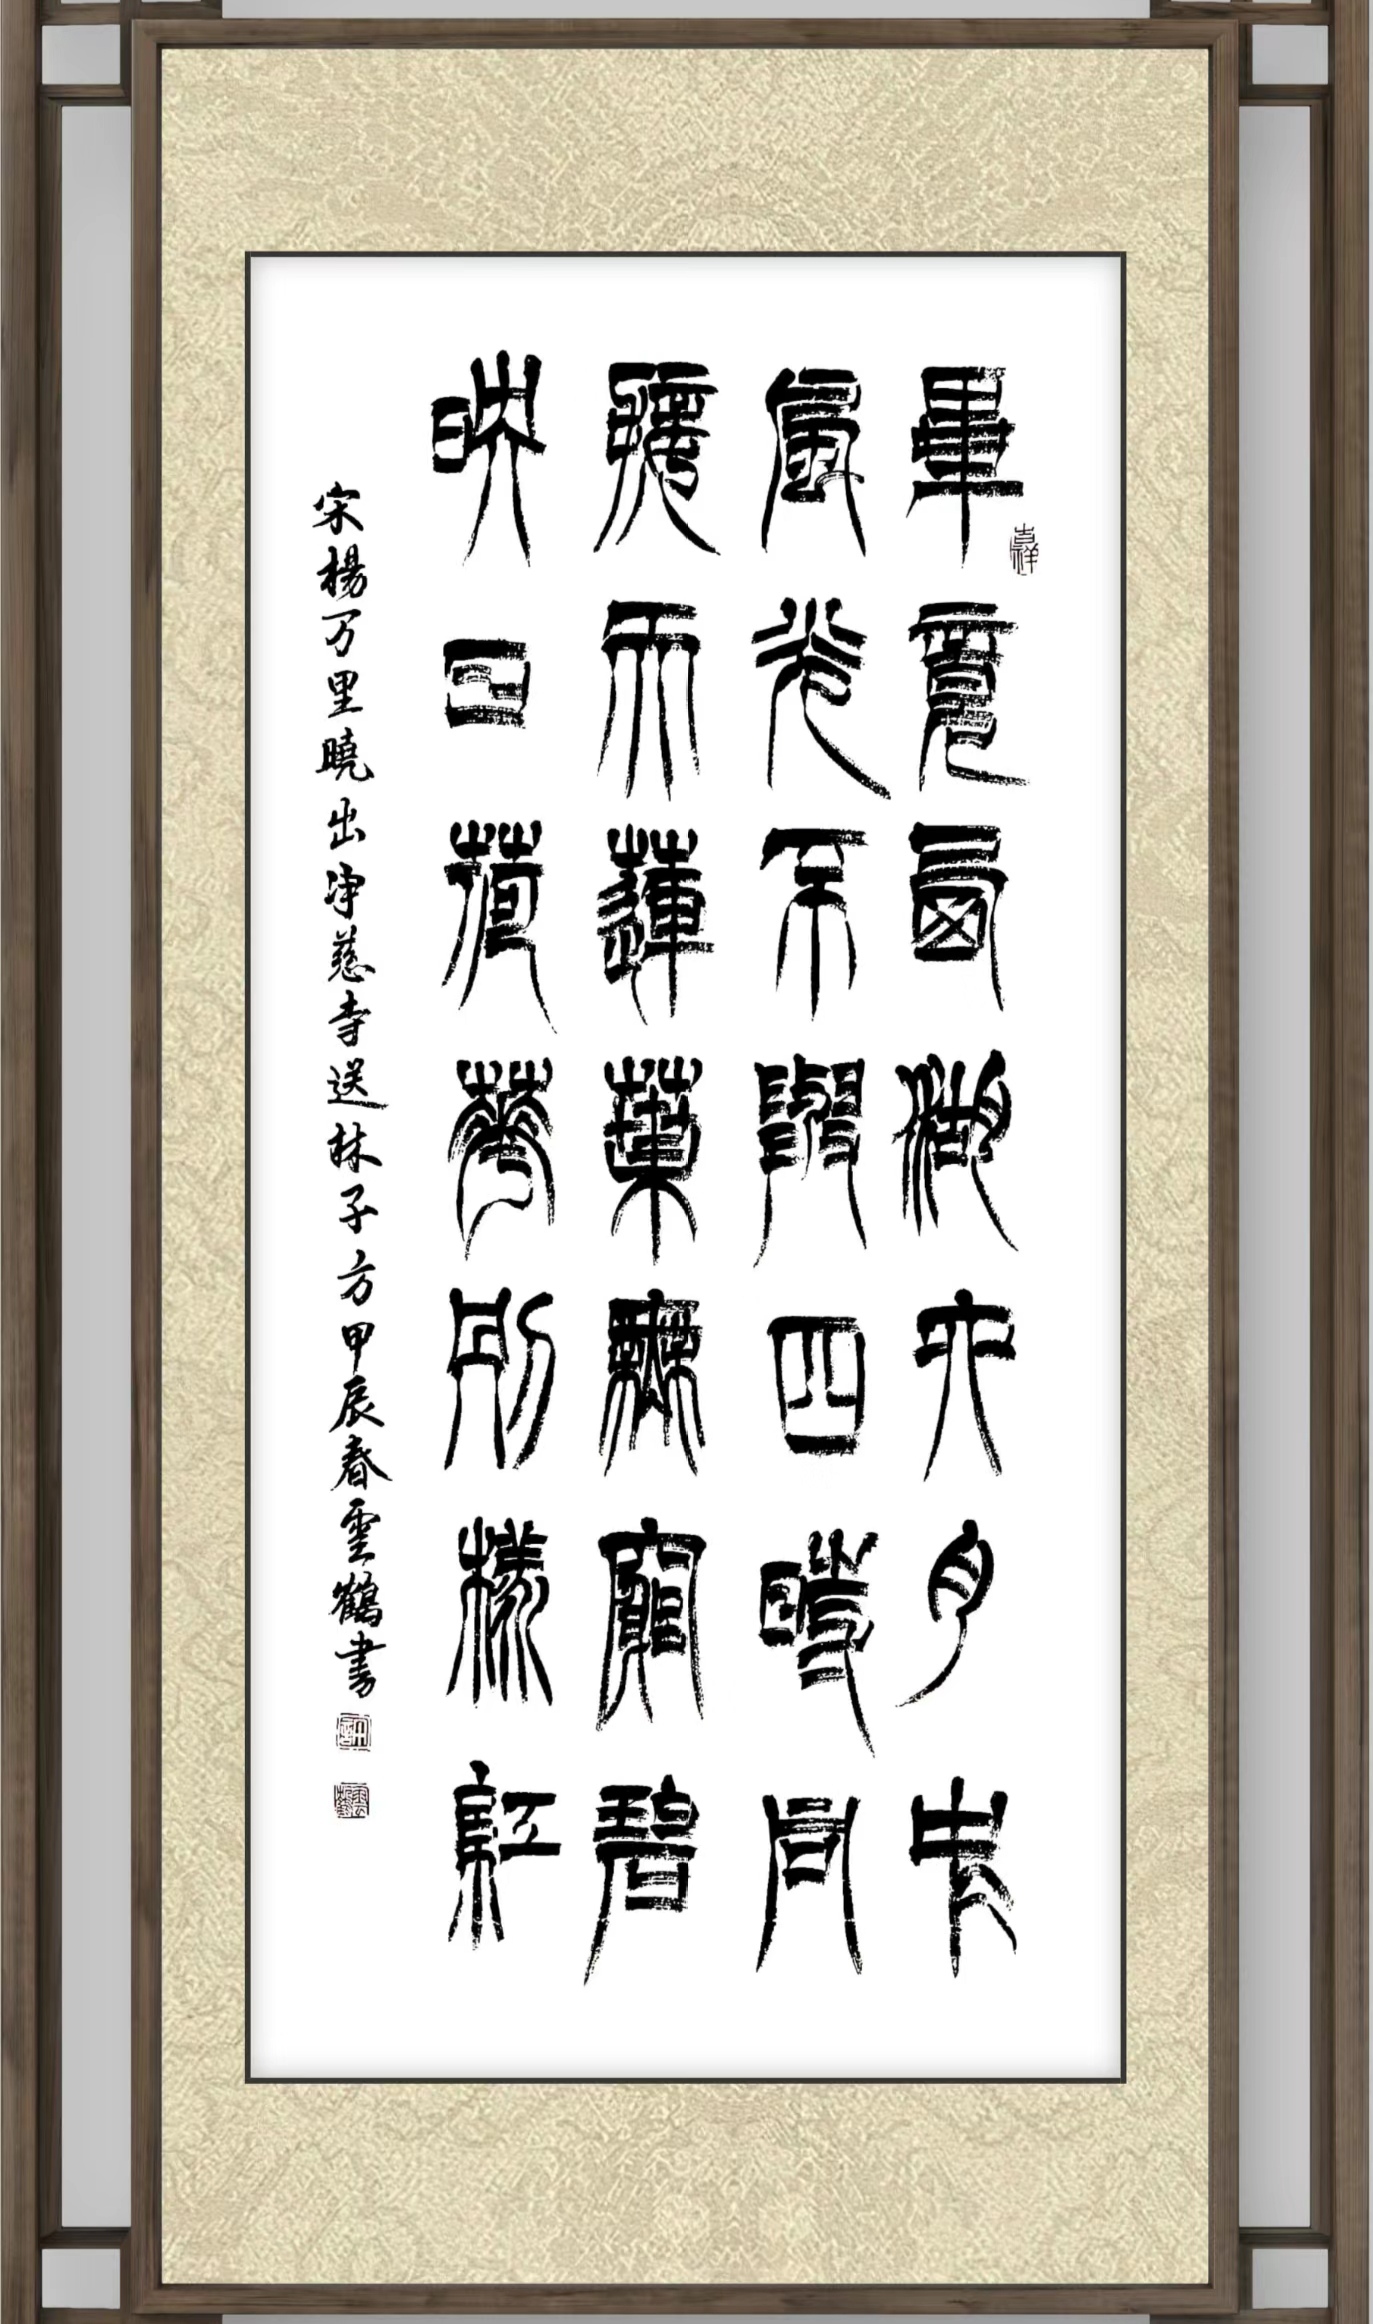 畢竟西湖六月中
吉祥
風光不與四時同
接天蓮葉無窮碧
映日荷華別樣紅
宋楊万里曉出净慈寺送林子方甲辰春雲鶴書